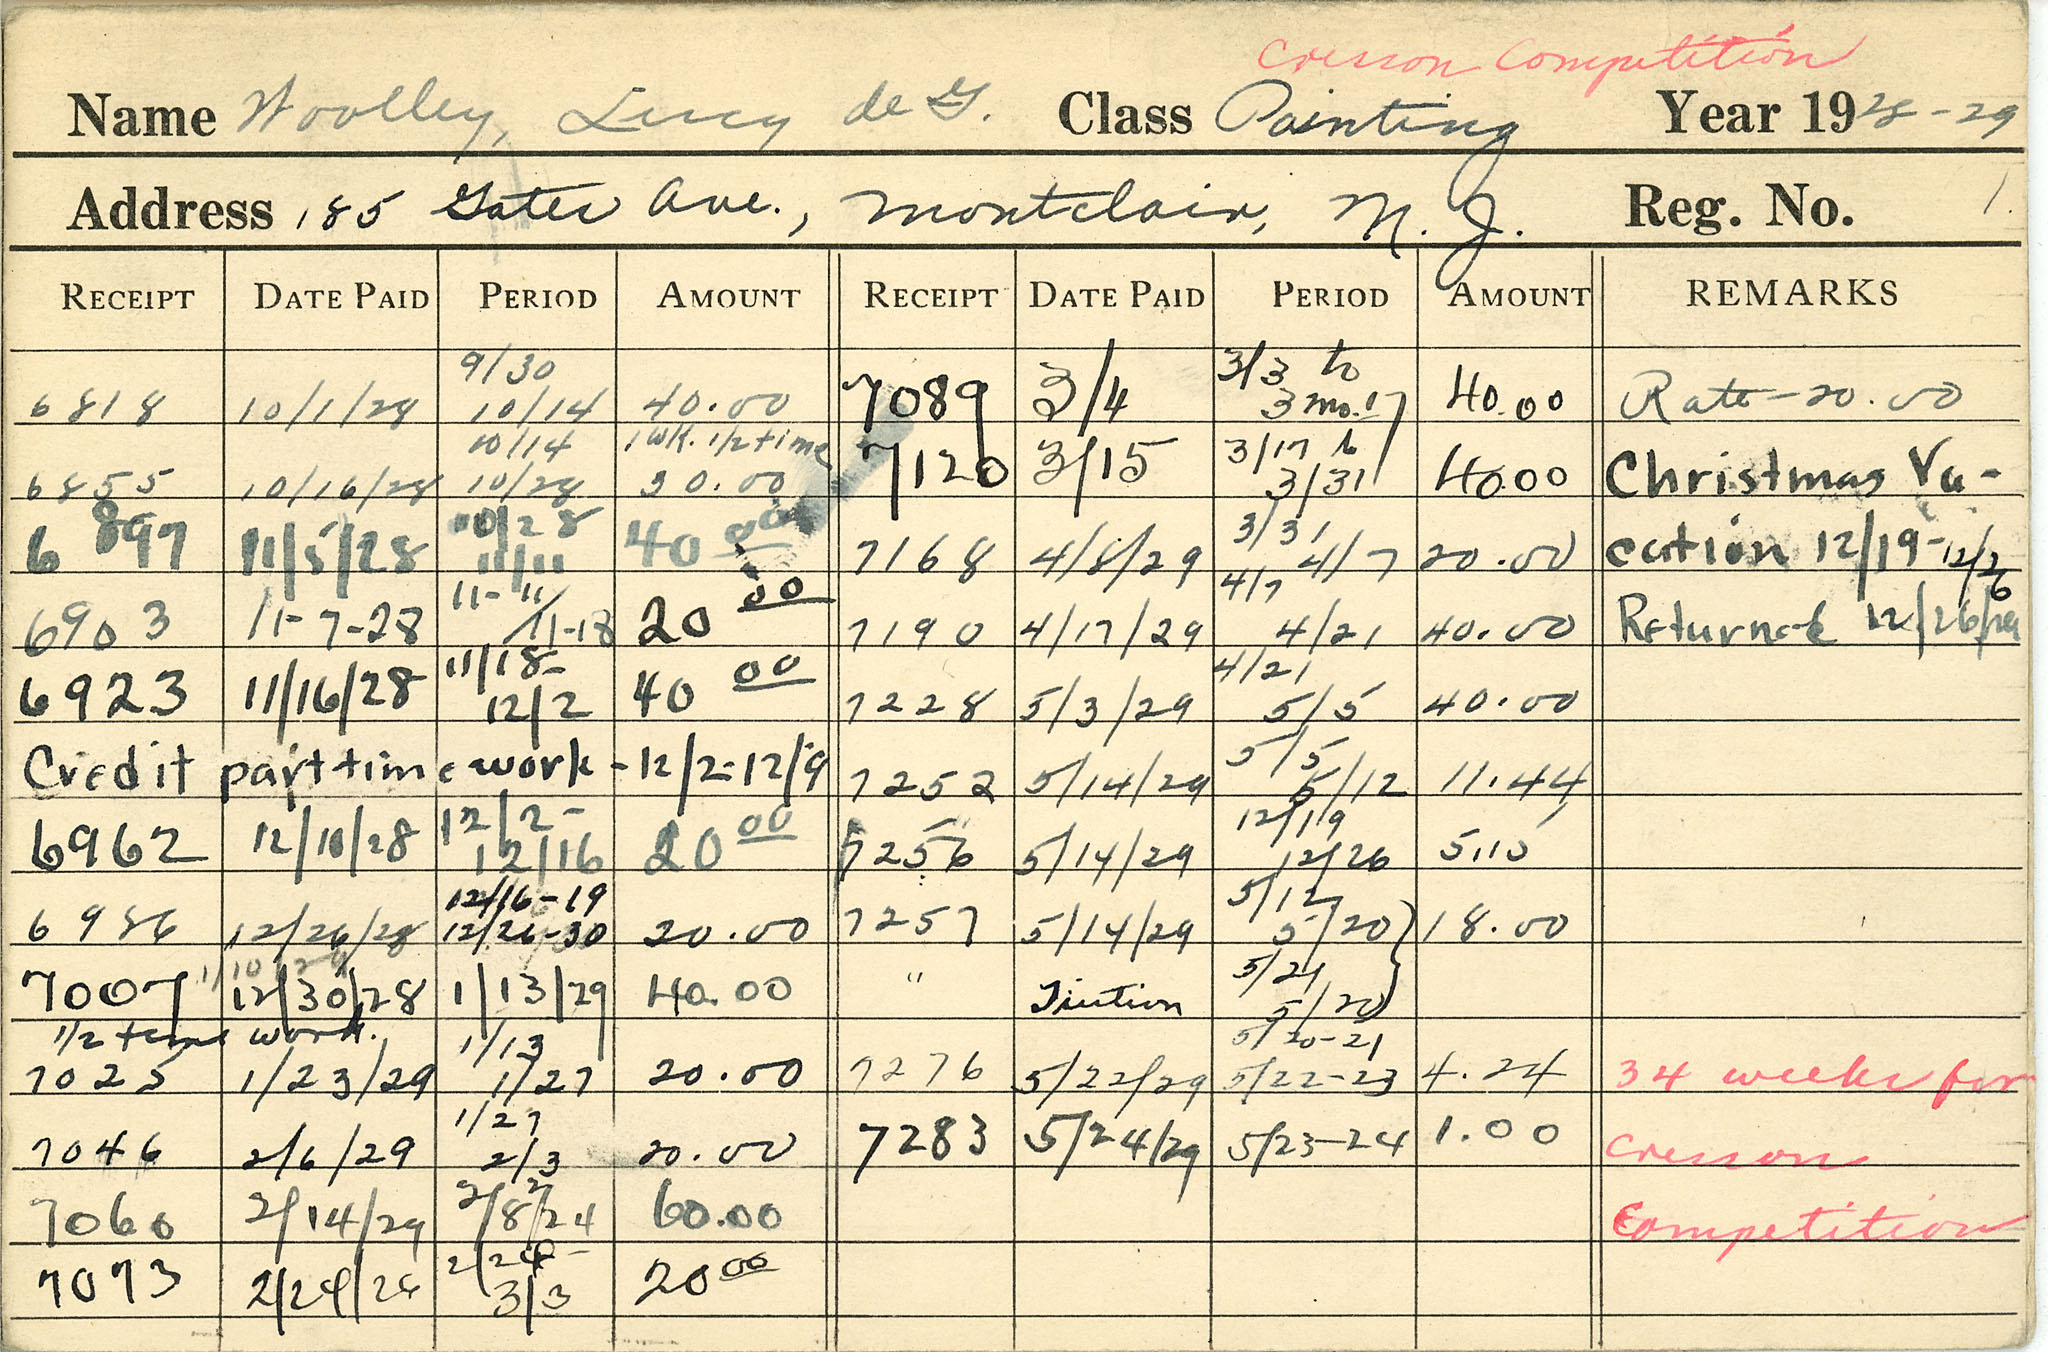 Cresson Competition
Name Woolley, Lucy de G. Class Painting Year 1928-29
Address 185 Gates Ave., Montclair, N. J. Reg. No. 1.
RECEIPT DATE PAID PERIOD AMOUNT RECEIPT DATE PAID PERIOD AMOUNT REMARKS
9/30 3/3 to
6818 10/1/28 10/14 40.00 7089 3/4 3 mo. 17 40.00 Rate-20.00
10/14 1 wk. 1/2 time 3/17 to
6855 10/16/28 10/28 30.00 7120 3/15 3/31 40.00 Christmas Va-
10/28 3/31
6897 11/5/28 11/11 40 00 7168 4/8/29 4/7 20.00 cation 12/19-12/26
11-11/ 4/7
6903 11-7-28 11-18 20 00 7190 4/17/29 4/21 40.00 Returned 12/26/28
11/18- 4/21
6923 11/16/28 12/2 40 00 7228 5/3/29 5/5 40.00
5/5
Credit part time work-12/2-12/9 7252 5/14/29 5/12 11.44
12/2- 12/19
6962 12/10/28 12/16 20 00 7256 5/14/29 12/26 5.15
12/16-19 5/12
6986 12/26/28 12/26-30 20.00 7257 5/14/29 5/20 18.00
1/10/29 5/21
7007 12/30/28 1/13/29 40.00 " 5/20
1/2 time work. 1/13 5/20-21
7025 1/23/29 1/27 20.00 7276 5/22/29 5/22-23 4.24 34 weeks for
1/27
7046 2/6/29 2/3 20.00 7283 5/24/29 5/23-24 1.00 Cresson
7060 2/14/29 2/8 2/24 60.00 Competition
2/24-
7073 2/24 3/3 20 00